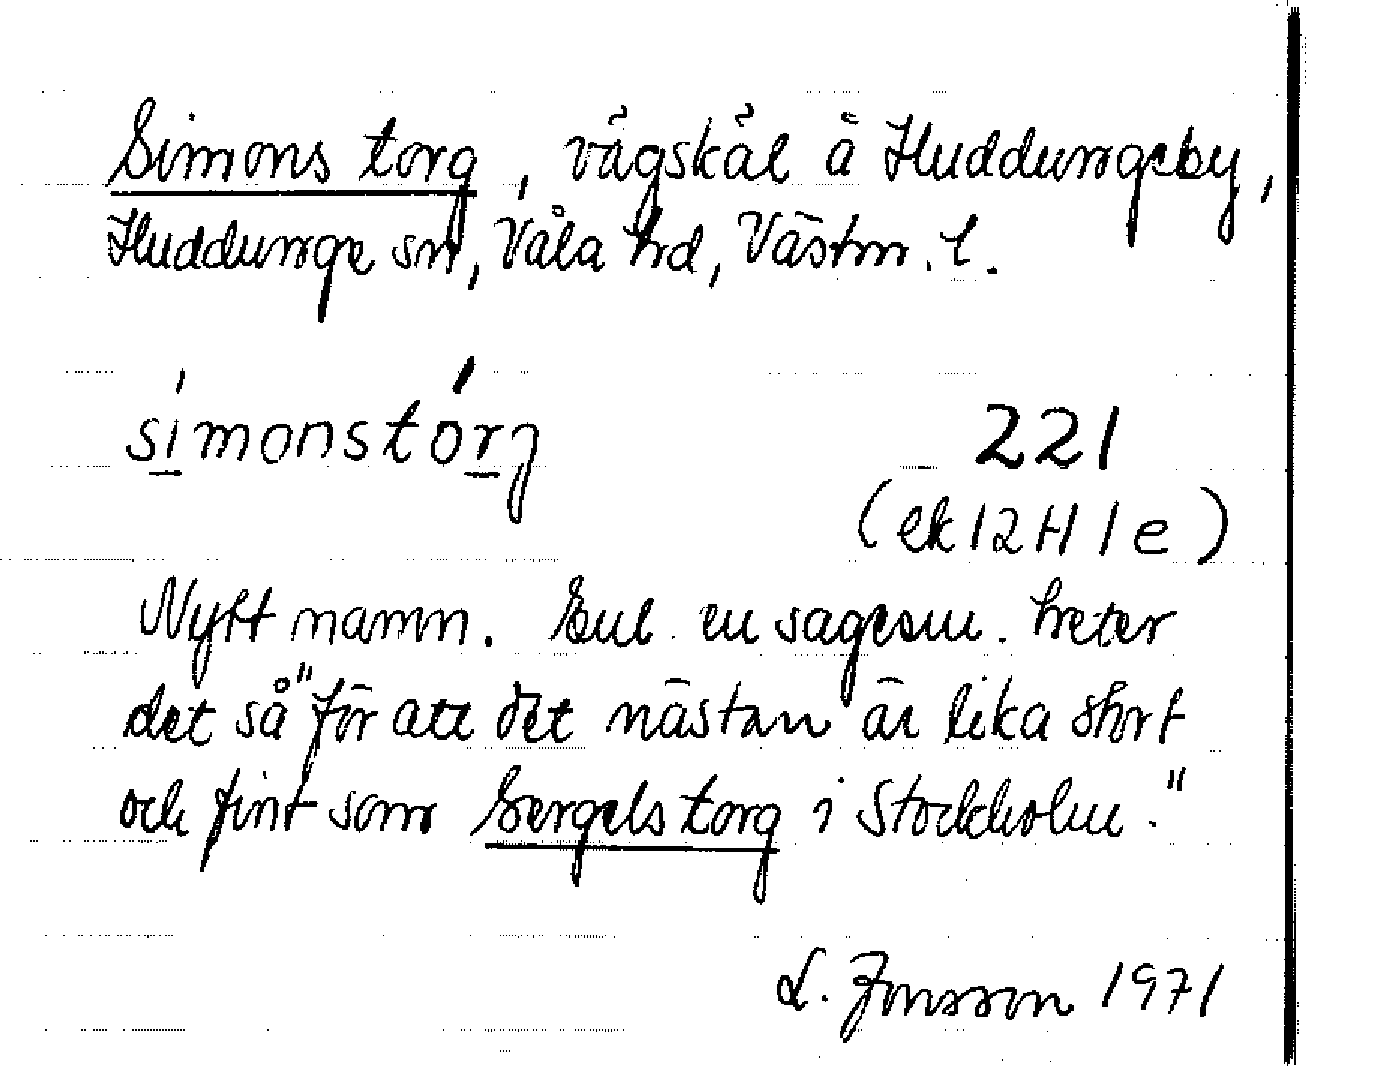 Simons torg, vägskäl å Huddungeby,
Huddunge sn, Våla hd, Västm. l.
símonstórj
221
(ek 12 H 1 e)
Nytt namn. Enl. en sagesm. heter
det så "för att det nästan är lika stort
och fint som Sergels torg i Stockholm."
L. Jonsson 1971